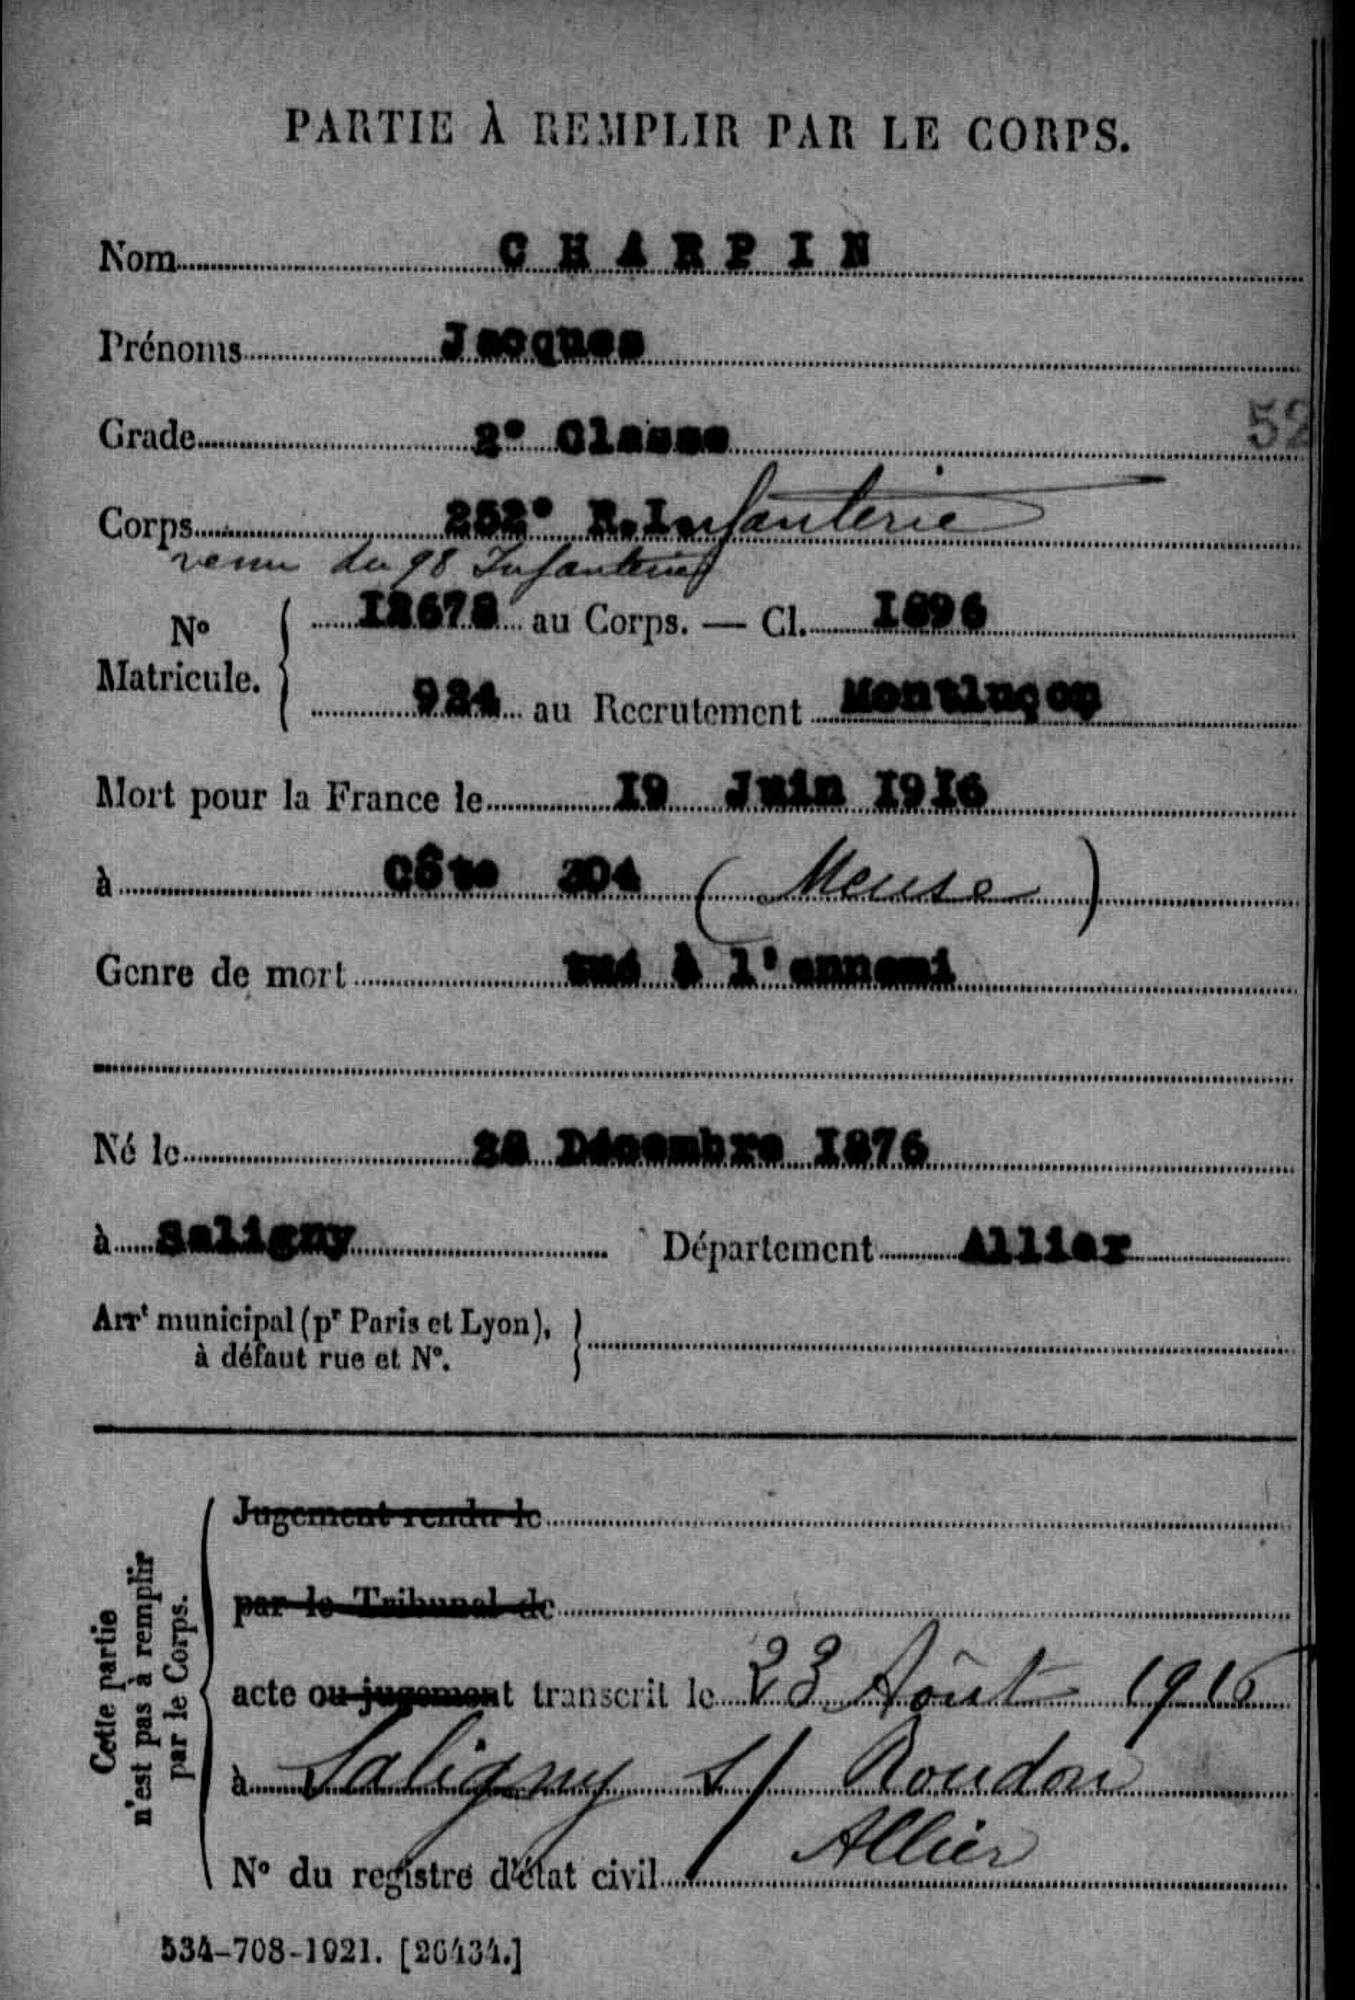 PARTIE À REMPLIR PAR LE CORPS.
Nom CHARPIN
Prénoms Jacques
Grade 2e Classe
52
Corps 252e R.Infanterie
venu du 98 Infanterie
No Matricule. 12678 au Corps. — Cl. 1896
924 au Recrutement Montluçon
Mort pour la France le 19 Juin 1916
à Côte 304 (Meuse)
Genre de mort tué à l'ennemi
Né le 28 Décembre 1876
à Saligny Département Allier
Arrt municipal (pr Paris et Lyon),
à défaut rue et No.
Cette partie
n'est pas à remplir
par le Corps.
Jugement rendu le
par le Tribunal de
acte ou jugement transcrit le 23 Août 1916
à Saligny s/ Roudon
Allier
No du registre d'état civil
534-708-1921. [26434.]